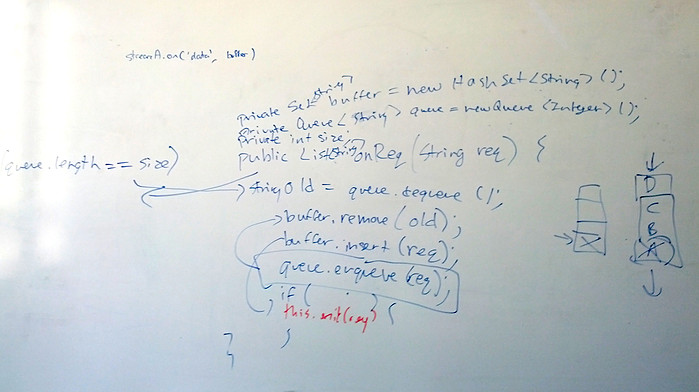 streamA.on('data', buffer)
private Set<String> buffer = new HashSet<String>();
private Queue<String> queue = new Queue<Integer>();
private int size;
public List<String> onReq(String req) {
(queue.length == size)
string old = queue.dequeue();
buffer.remove(old);
buffer.insert(req);
queue.enqueue(req);
if (   ) {
this.emit(req)
}
}
X
D
C
B
A